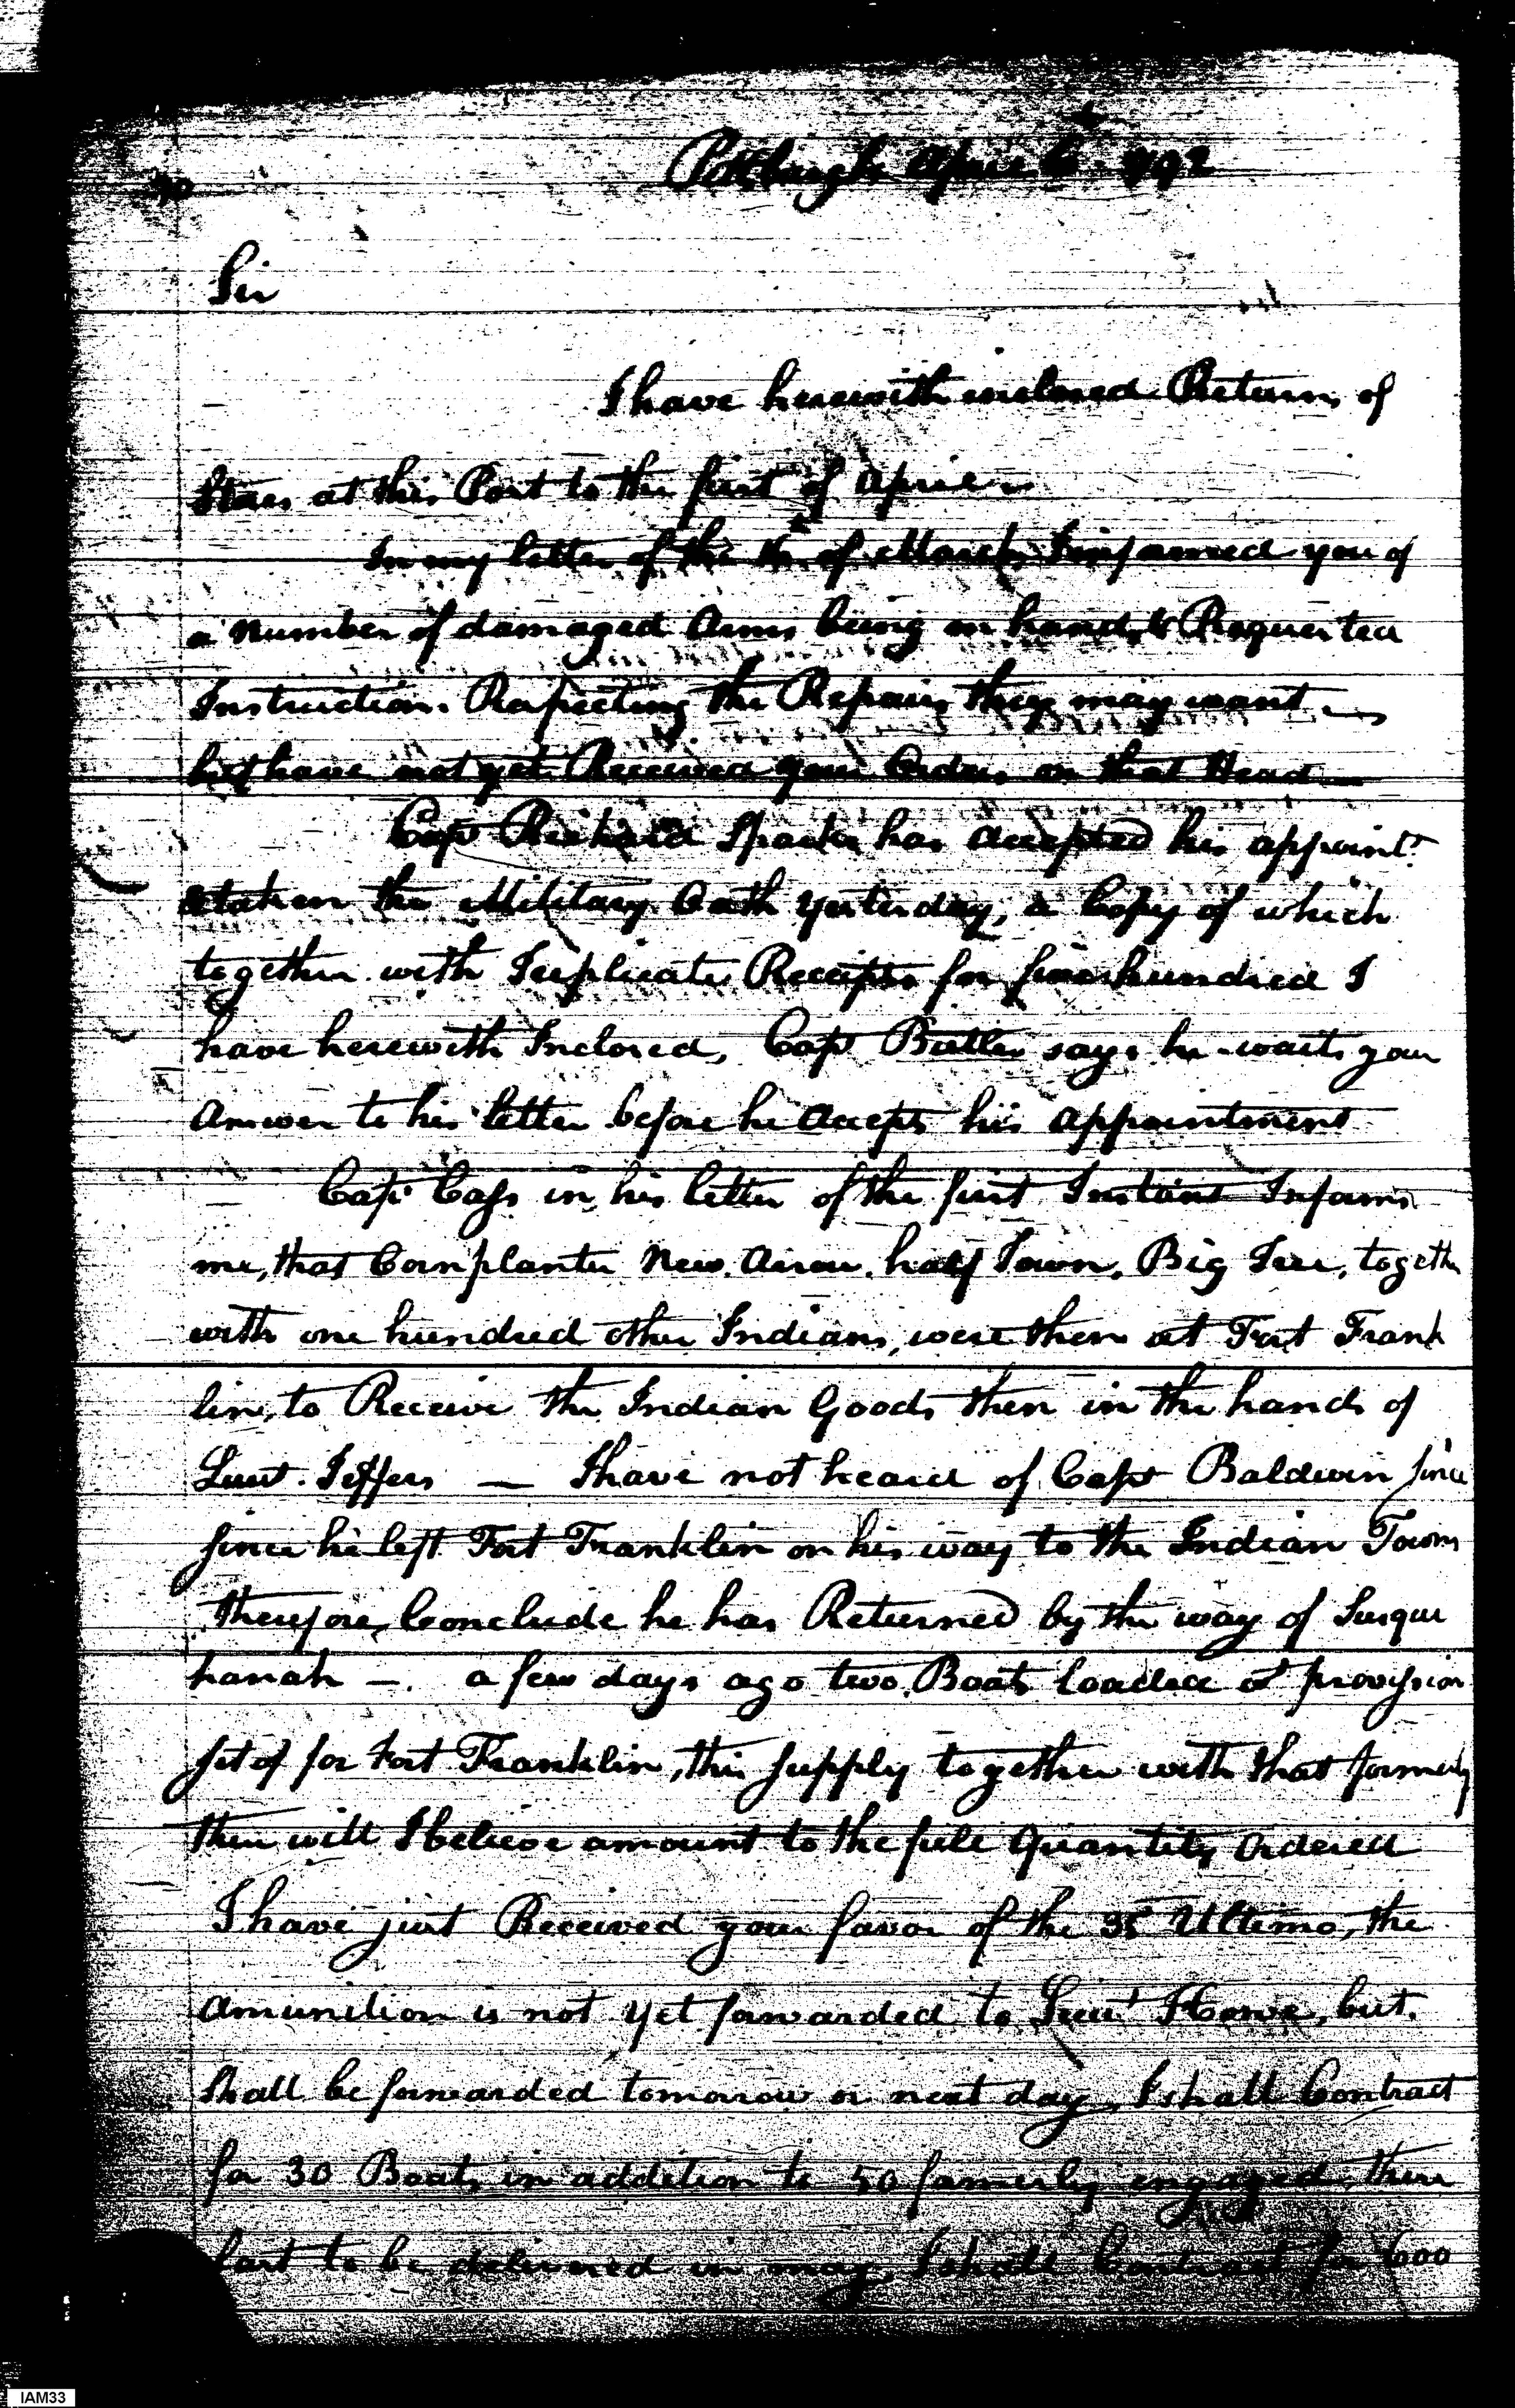 Pittsburgh April 6 1792
Sir
I have herewith inclosed Return of
Stores at this Post to the first of April
In my letter of the of March I informed you of
a Number of damaged Arms being on hand, & Requested
Instructions Respecting the Repairs they may want
but have not yet Received your Orders on that Head
Capt Richard Sparks has accepted his appoint.
& taken the Military Oath yesterday, a Copy of which
together with Triplicate Receipts for hundred I
have herewith Inclosed, Capt Butler says he waits your
Answer to his letter before he accepts his appointment
Capt Cass in his letter of the first Instant Informs
me, that Cornplanter New Arrow, half Town, Big Tree, togeth
with one hundred other Indians, were then at Fort Frank
lin, to Receive the Indian Goods then in the hands of
Lieut. Jeffers — I have not heard of Capt Baldwin since
since he left Fort Franklin on his way to the Indian Towns
therefore, Conclude he has Returned by the way of Susque
hanah —. a few days ago two Boats loaded of provision
set of for Fort Franklin, this supply together with that formerly
will I believe amount to the full Quantity Ordered
I have just Received your favor of the Ultimo, the
amunition is not yet forwarded to Lieut Howe, but
shall be forwarded tomorow or next day, I shall Contract
for 30 Boats in addition to 50 formerly engaged, these
last to be delivered in may, I shall Contract for 600
IAM33